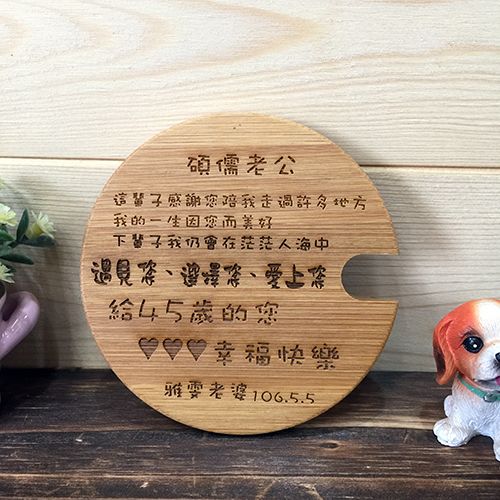 碩儒老公
這輩子感謝您陪我走過許多地方
我的一生因您而美好
下輩子我仍會在茫茫人海中
遇見您、選擇您、愛上您
給45歲的您
♥♥♥幸福快樂
雅雯老婆106.5.5